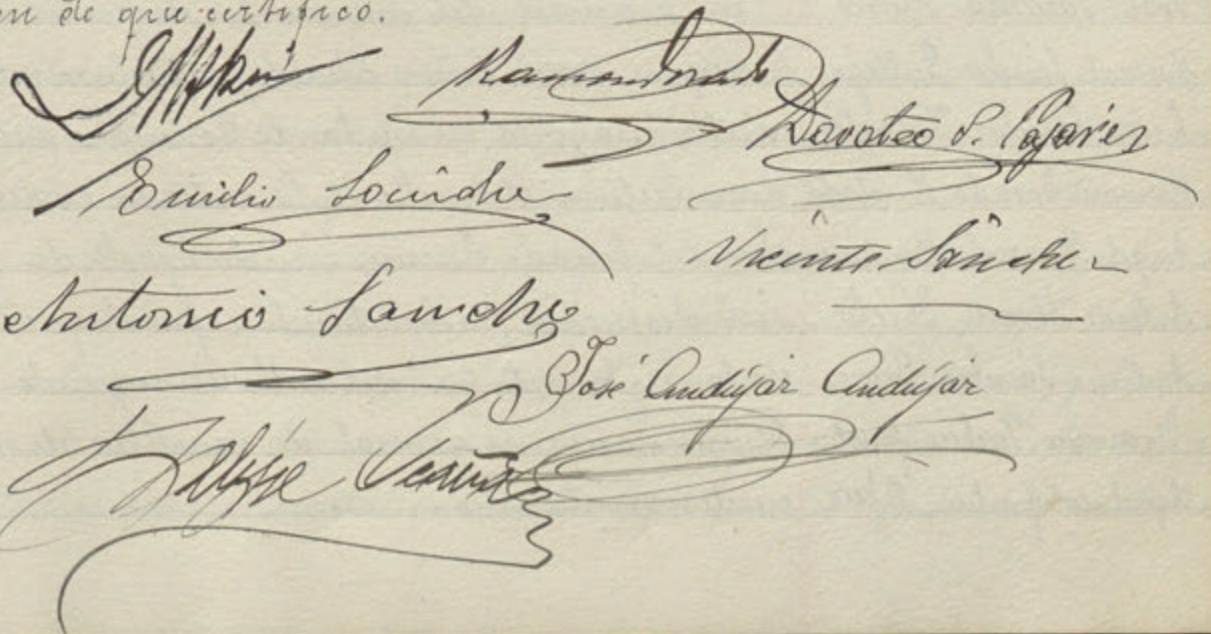 en de que certifico.
Ramon Dorado
Doroteo S. Pajares
Emilio Sánchez
Vicente Sánchez
Antonio Sanchez
José Andújar Andújar
Felipe